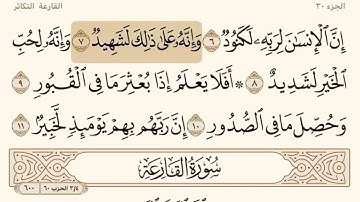 الجزء ٣٠ القارعة التكاثر
إِنَّ ٱلْإِنسَٰنَ لِرَبِّهِۦ لَكَنُودٌ ٦ وَإِنَّهُۥ عَلَىٰ ذَٰلِكَ لَشَهِيدٌ ٧ وَإِنَّهُۥ لِحُبِّ
ٱلْخَيْرِ لَشَدِيدٌ ٨ ۞ أَفَلَا يَعْلَمُ إِذَا بُعْثِرَ مَا فِي ٱلْقُبُورِ ٩
وَحُصِّلَ مَا فِي ٱلصُّدُورِ ١٠ إِنَّ رَبَّهُم بِهِمْ يَوْمَئِذٍ لَّخَبِيرٌۢ ١١
٦٠٠ ٣/٤ الحزب ٦٠
سُورَةُ ٱلْقَارِعَةِ